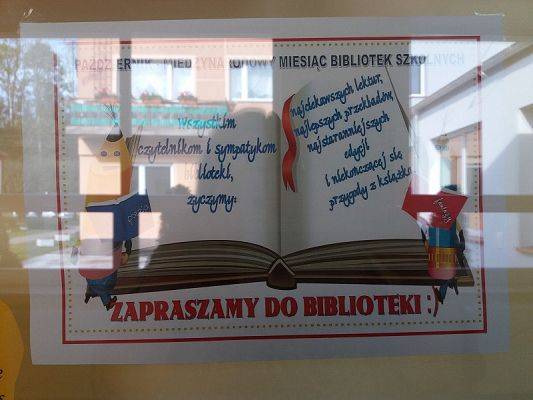 PAŹDZIERNIK - MIĘDZYNARODOWY MIESIĄC BIBLIOTEK SZKOLNYCH
Wszystkim
czytelnikom i sympatykom
biblioteki,
życzymy:
najciekawszych lektur,
najlepszych przekładów,
najstaranniejszych
edycji
i niekończącej się
przygody z książką
ZAPRASZAMY DO BIBLIOTEKI :)